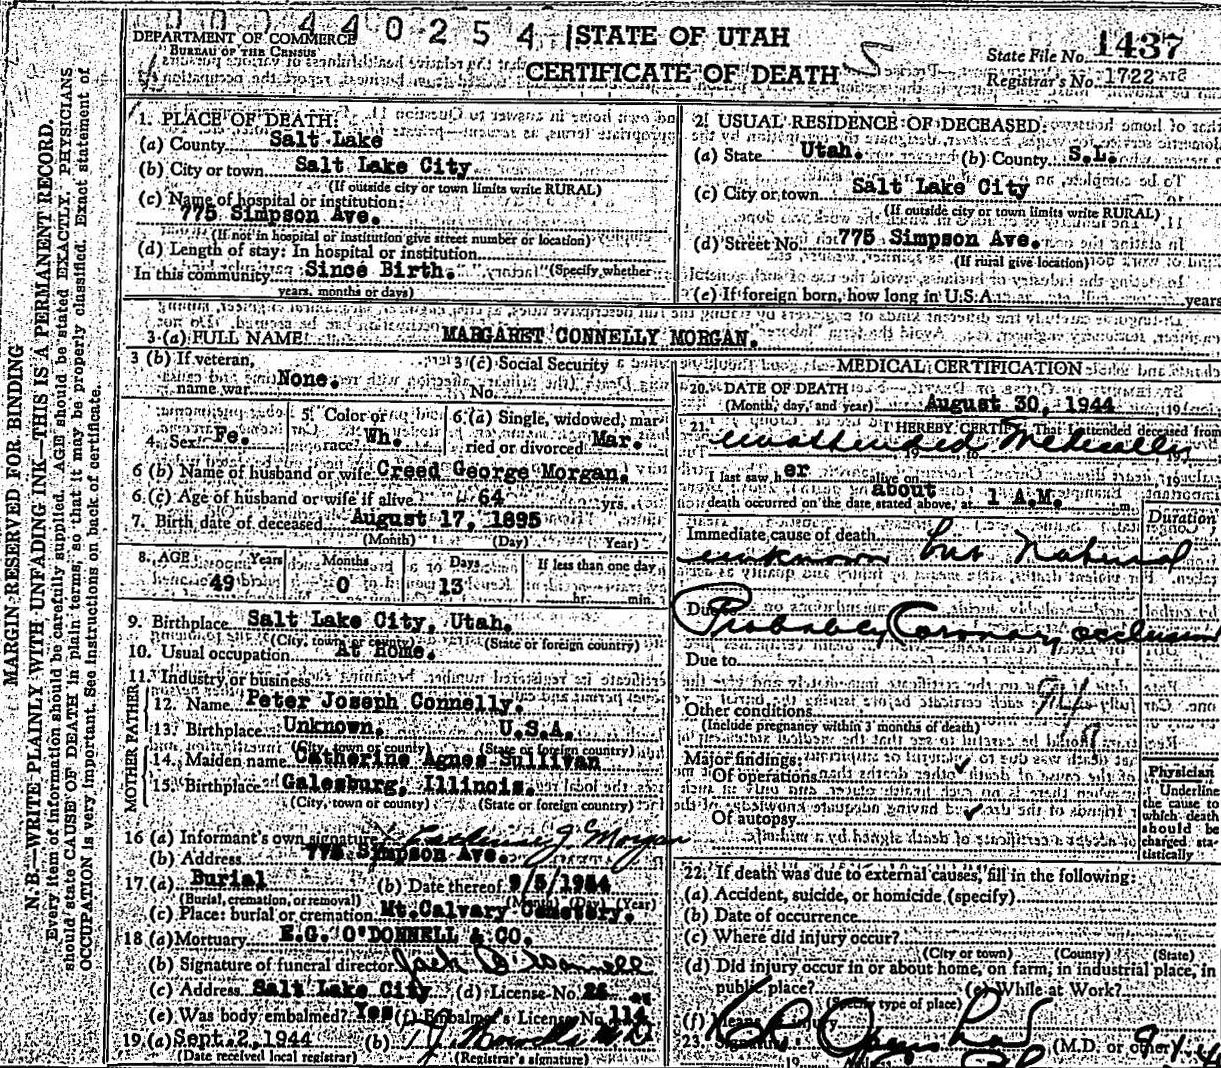 00044 0254
DEPARTMENT OF COMMERCE
BUREAU OF THE CENSUS
STATE OF UTAH
CERTIFICATE OF DEATH
State File No. 1437
Registrar's No. 1722
MARGIN RESERVED FOR BINDING
N. B.—WRITE PLAINLY WITH UNFADING INK—THIS IS A PERMANENT RECORD.
Every item of information should be carefully supplied. AGE should be stated EXACTLY. PHYSICIANS
should state CAUSE OF DEATH in plain terms, so that it may be properly classified. Exact statement of
OCCUPATION is very important. See instructions on back of certificate.
1. PLACE OF DEATH:
(a) County Salt Lake
(b) City or town Salt Lake City
(If outside city or town limits write RURAL)
(c) Name of hospital or institution:
775 Simpson Ave.
(If not in hospital or institution give street number or location)
(d) Length of stay: In hospital or institution
In this community Since Birth. (Specify whether
years, months or days)
2. USUAL RESIDENCE OF DECEASED:
(a) State Utah. (b) County S.L.
(c) City or town Salt Lake City
(If outside city or town limits write RURAL)
(d) Street No. 775 Simpson Ave.
(If rural give location)
(e) If foreign born, how long in U.S.A. years
3 (a) FULL NAME MARGARET CONNELLY MORGAN.
3 (b) If veteran,
name war None.
3 (c) Social Security
No.
4. Sex Fe.
5. Color or
race Wh.
6 (a) Single, widowed, mar-
ried or divorced Mar.
6 (b) Name of husband or wife Creed George Morgan.
6 (c) Age of husband or wife if alive 64 yrs.
7. Birth date of deceased August 17, 1895
(Month) (Day) (Year)
8. AGE Years Months Days If less than one day
49 0 13 hr. min.
9. Birthplace Salt Lake City, Utah.
(City, town or county) (State or foreign country)
10. Usual occupation At Home.
11. Industry or business
FATHER
12. Name Peter Joseph Connelly.
13. Birthplace Unknown. U.S.A.
(City, town or county) (State or foreign country)
MOTHER
14. Maiden name Catherine Agnes Sullivan
15. Birthplace Galesburg, Illinois.
(City, town or county) (State or foreign country)
16 (a) Informant's own signature Catherine J. Morgan
(b) Address 775 Simpson Ave.
17. (a) Burial (b) Date thereof 9/5/1944
(Burial, cremation, or removal) (Month) (Day) (Year)
(c) Place: burial or cremation Mt. Calvary Cemetery.
18 (a) Mortuary E.G. O'DONNELL & CO.
(b) Signature of funeral director Jack O'Donnell
(c) Address Salt Lake City (d) License No.
(e) Was body embalmed? Yes (f) Embalmer's License No. 114
19. (a) Sept. 2, 1944 (b)
(Date received local registrar) (Registrar's signature)
MEDICAL CERTIFICATION
20. DATE OF DEATH
(Month, day, and year) August 30, 1944 19
21. I HEREBY CERTIFY, That I attended deceased from
unattended Medically
I last saw h er alive on 19
death occurred on the date stated above, at about 1 A.M. m.
Duration
Immediate cause of death
unknown but Natural
Due to Probably Coronary occlusion
Due to
Other conditions
(Include pregnancy within 3 months of death)
Major findings:
Of operations
Of autopsy
Physician
Underline
the cause to
which death
should be
charged sta-
tistically
22. If death was due to external causes, fill in the following:
(a) Accident, suicide, or homicide (specify)
(b) Date of occurrence
(c) Where did injury occur?
(City or town) (County) (State)
(d) Did injury occur in or about home, on farm, in industrial place, in
public place? (e) While at Work?
(Specify type of place)
(f) Means of injury
23. Signature (M.D. or other)
19